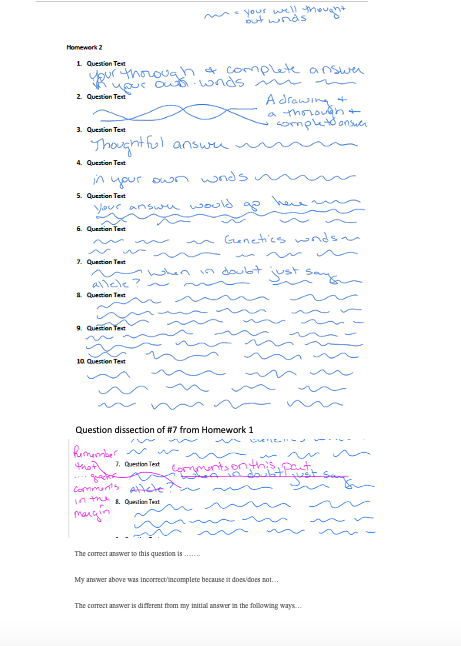 = your well thought
out words
Homework 2
1. Question Text
your thorough & complete answer
in your own words
2. Question Text
A drawing +
a thorough +
complete answer
3. Question Text
Thoughtful answer
4. Question Text
in your own words
5. Question Text
Your answer would go here
6. Question Text
Genetics words
7. Question Text
when in doubt just say
allele?
8. Question Text
9. Question Text
10. Question Text
Question dissection of #7 from Homework 1
Remember
that
7. Question Text
comments on this part
when in doubt just say
comments
allele?
in the
8. Question Text
margin
The correct answer to this question is …….
My answer above was incorrect/incomplete because it does/does not…
The correct answer is different from my initial answer in the following ways…